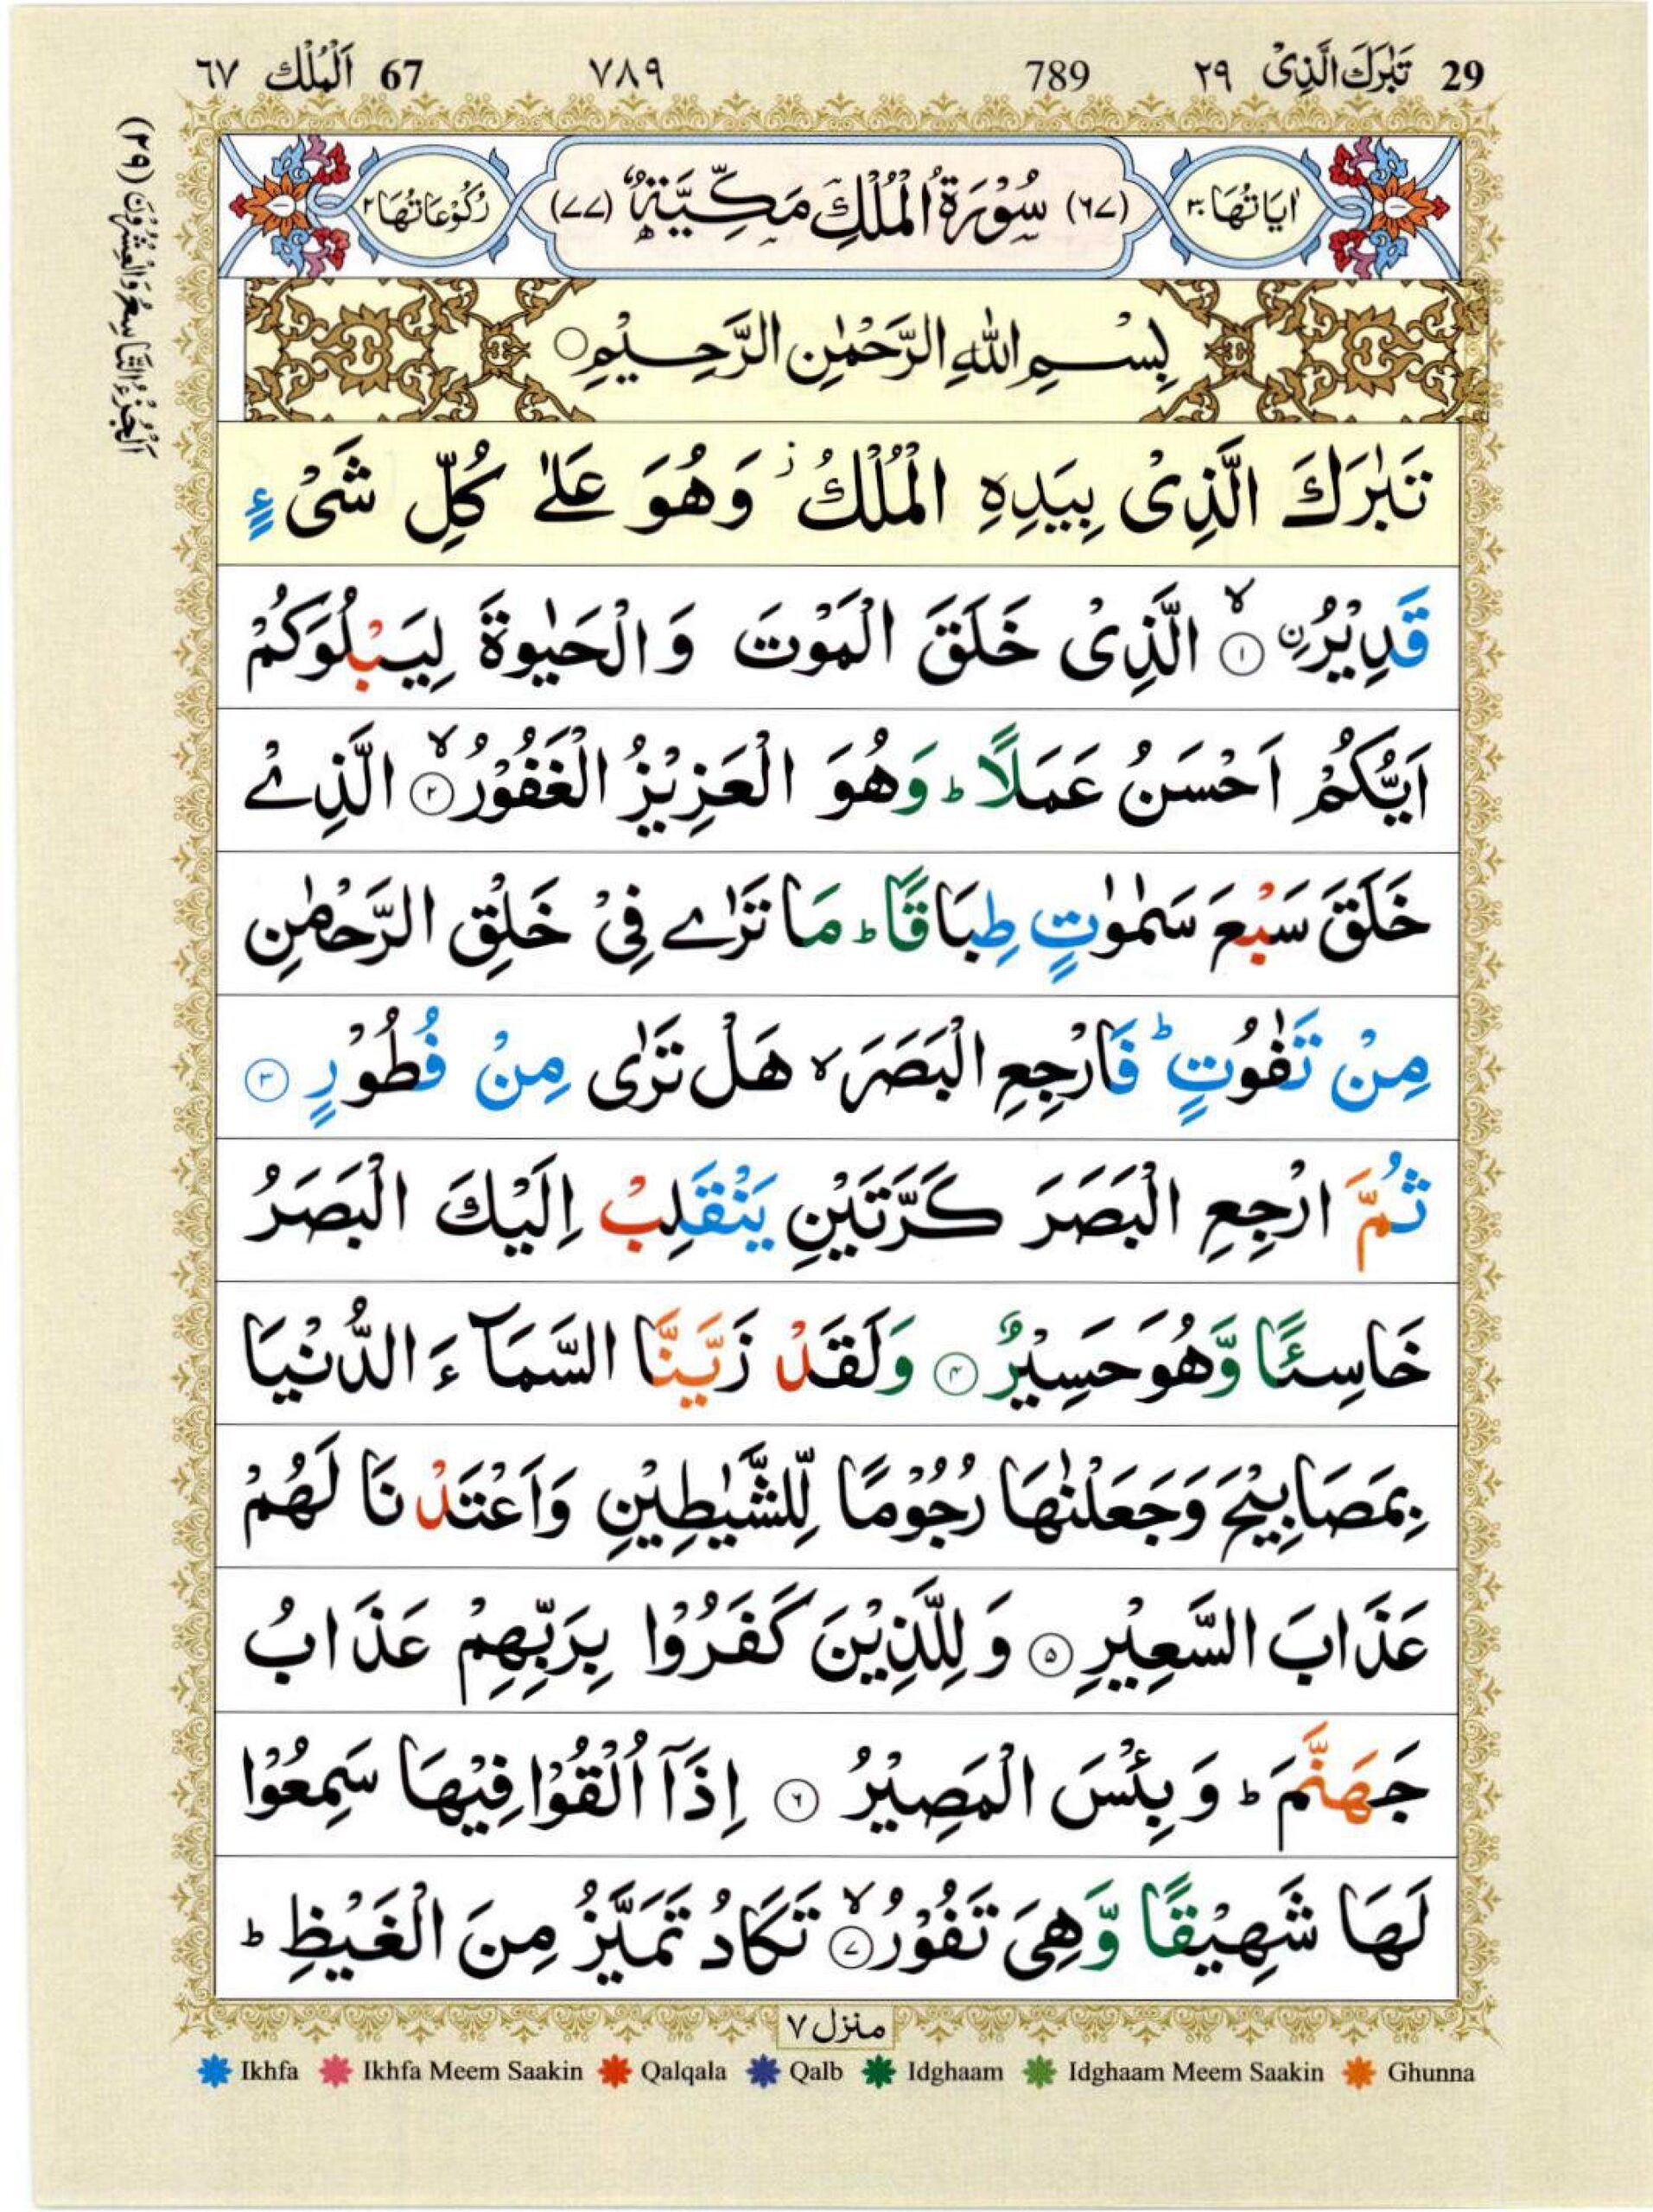 29 تَبٰرَكَ الَّذِىْ ٢٩ 789 ٧٨٩ 67 اَلْمُلْك ٦٧
اَلْجُزْءُ التَّاسِعُ وَالْعِشْرُوْنَ (٢٩)
اٰيَاتُهَا ٣٠ (٦٧) سُوْرَةُ الْمُلْكِ مَكِّيَّةٌ (٧٧) رُكُوْعَاتُهَا ٢
بِسْمِ اللّٰهِ الرَّحْمٰنِ الرَّحِيْمِ
تَبٰرَكَ الَّذِىْ بِيَدِهِ الْمُلْكُ ؗ وَهُوَ عَلٰى كُلِّ شَىْءٍ
قَدِيْرُ ۨ ۙ ۱ الَّذِىْ خَلَقَ الْمَوْتَ وَالْحَيٰوةَ لِيَبْلُوَكُمْ
اَيُّكُمْ اَحْسَنُ عَمَلًا ؕ وَهُوَ الْعَزِيْزُ الْغَفُوْرُ ۙ ۲ الَّذِىْ
خَلَقَ سَبْعَ سَمٰوٰتٍ طِبَاقًا ؕ مَا تَرٰى فِىْ خَلْقِ الرَّحْمٰنِ
مِنْ تَفٰوُتٍ ؕ فَارْجِعِ الْبَصَرَ ۙ هَلْ تَرٰى مِنْ فُطُوْرٍ ۳
ثُمَّ ارْجِعِ الْبَصَرَ كَرَّتَيْنِ يَنْقَلِبْ اِلَيْكَ الْبَصَرُ
خَاسِئًا وَّهُوَ حَسِيْرٌ ۴ وَلَقَدْ زَيَّنَّا السَّمَآءَ الدُّنْيَا
بِمَصَابِيْحَ وَجَعَلْنٰهَا رُجُوْمًا لِّلشَّيٰطِيْنِ وَاَعْتَدْنَا لَهُمْ
عَذَابَ السَّعِيْرِ ۵ وَلِلَّذِيْنَ كَفَرُوْا بِرَبِّهِمْ عَذَابُ
جَهَنَّمَ ؕ وَبِئْسَ الْمَصِيْرُ ۶ اِذَآ اُلْقُوْا فِيْهَا سَمِعُوْا
لَهَا شَهِيْقًا وَّهِىَ تَفُوْرُ ۙ ۷ تَكَادُ تَمَيَّزُ مِنَ الْغَيْظِ ؕ
منزل ٧
Ikhfa Ikhfa Meem Saakin Qalqala Qalb Idghaam Idghaam Meem Saakin Ghunna